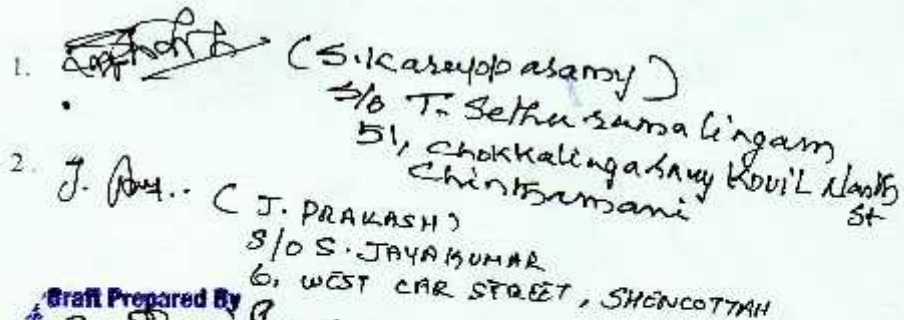 1. (S. Karuppasamy)
S/o T. Sethuramalingam
51, Chokkalingasamy Kovil North St
Chinthamani
2. J. (J. PRAKASH)
S/O S. JAYAKUMAR
6, WEST CAR STREET, SHENCOTTAH
Draft Prepared By